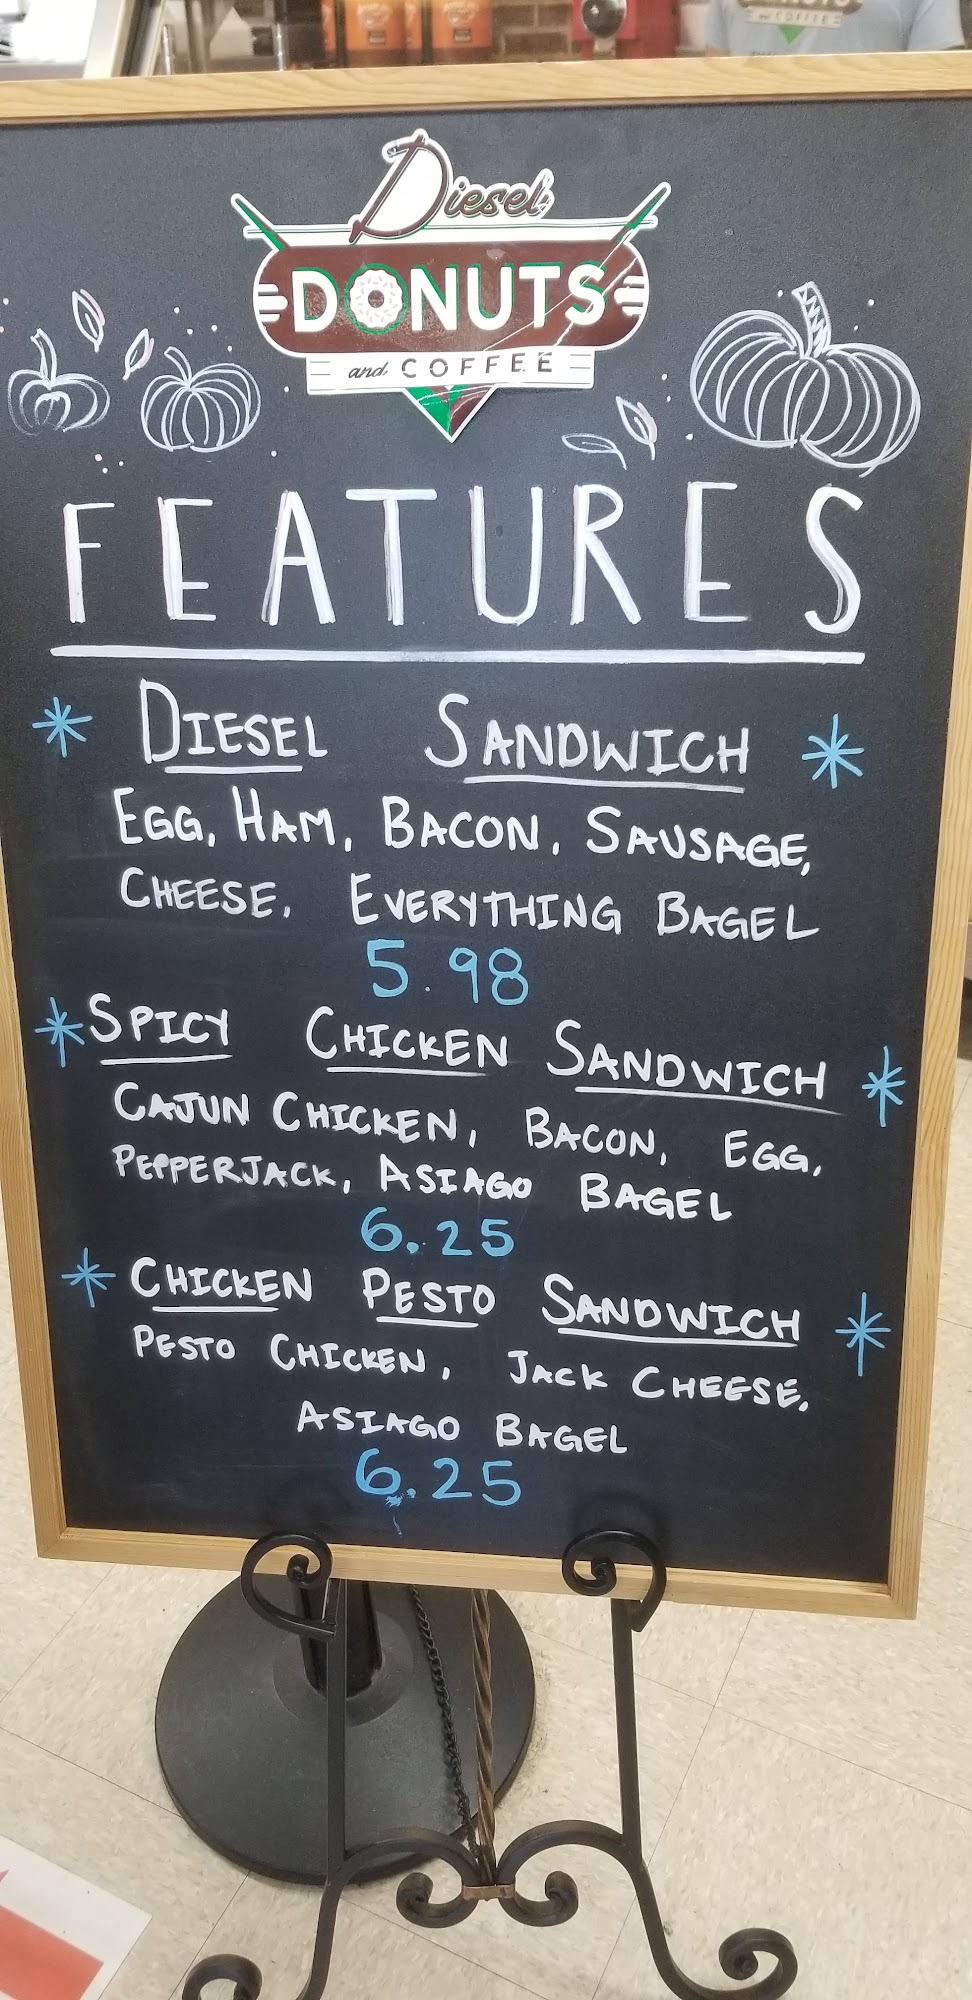 Diesel
DONUTS
and COFFEE
FEATURES
DIESEL SANDWICH
EGG, HAM, BACON, SAUSAGE,
CHEESE, EVERYTHING BAGEL
5.98
SPICY CHICKEN SANDWICH
CAJUN CHICKEN, BACON, EGG,
PEPPERJACK, ASIAGO BAGEL
6.25
CHICKEN PESTO SANDWICH
PESTO CHICKEN, JACK CHEESE,
ASIAGO BAGEL
6.25